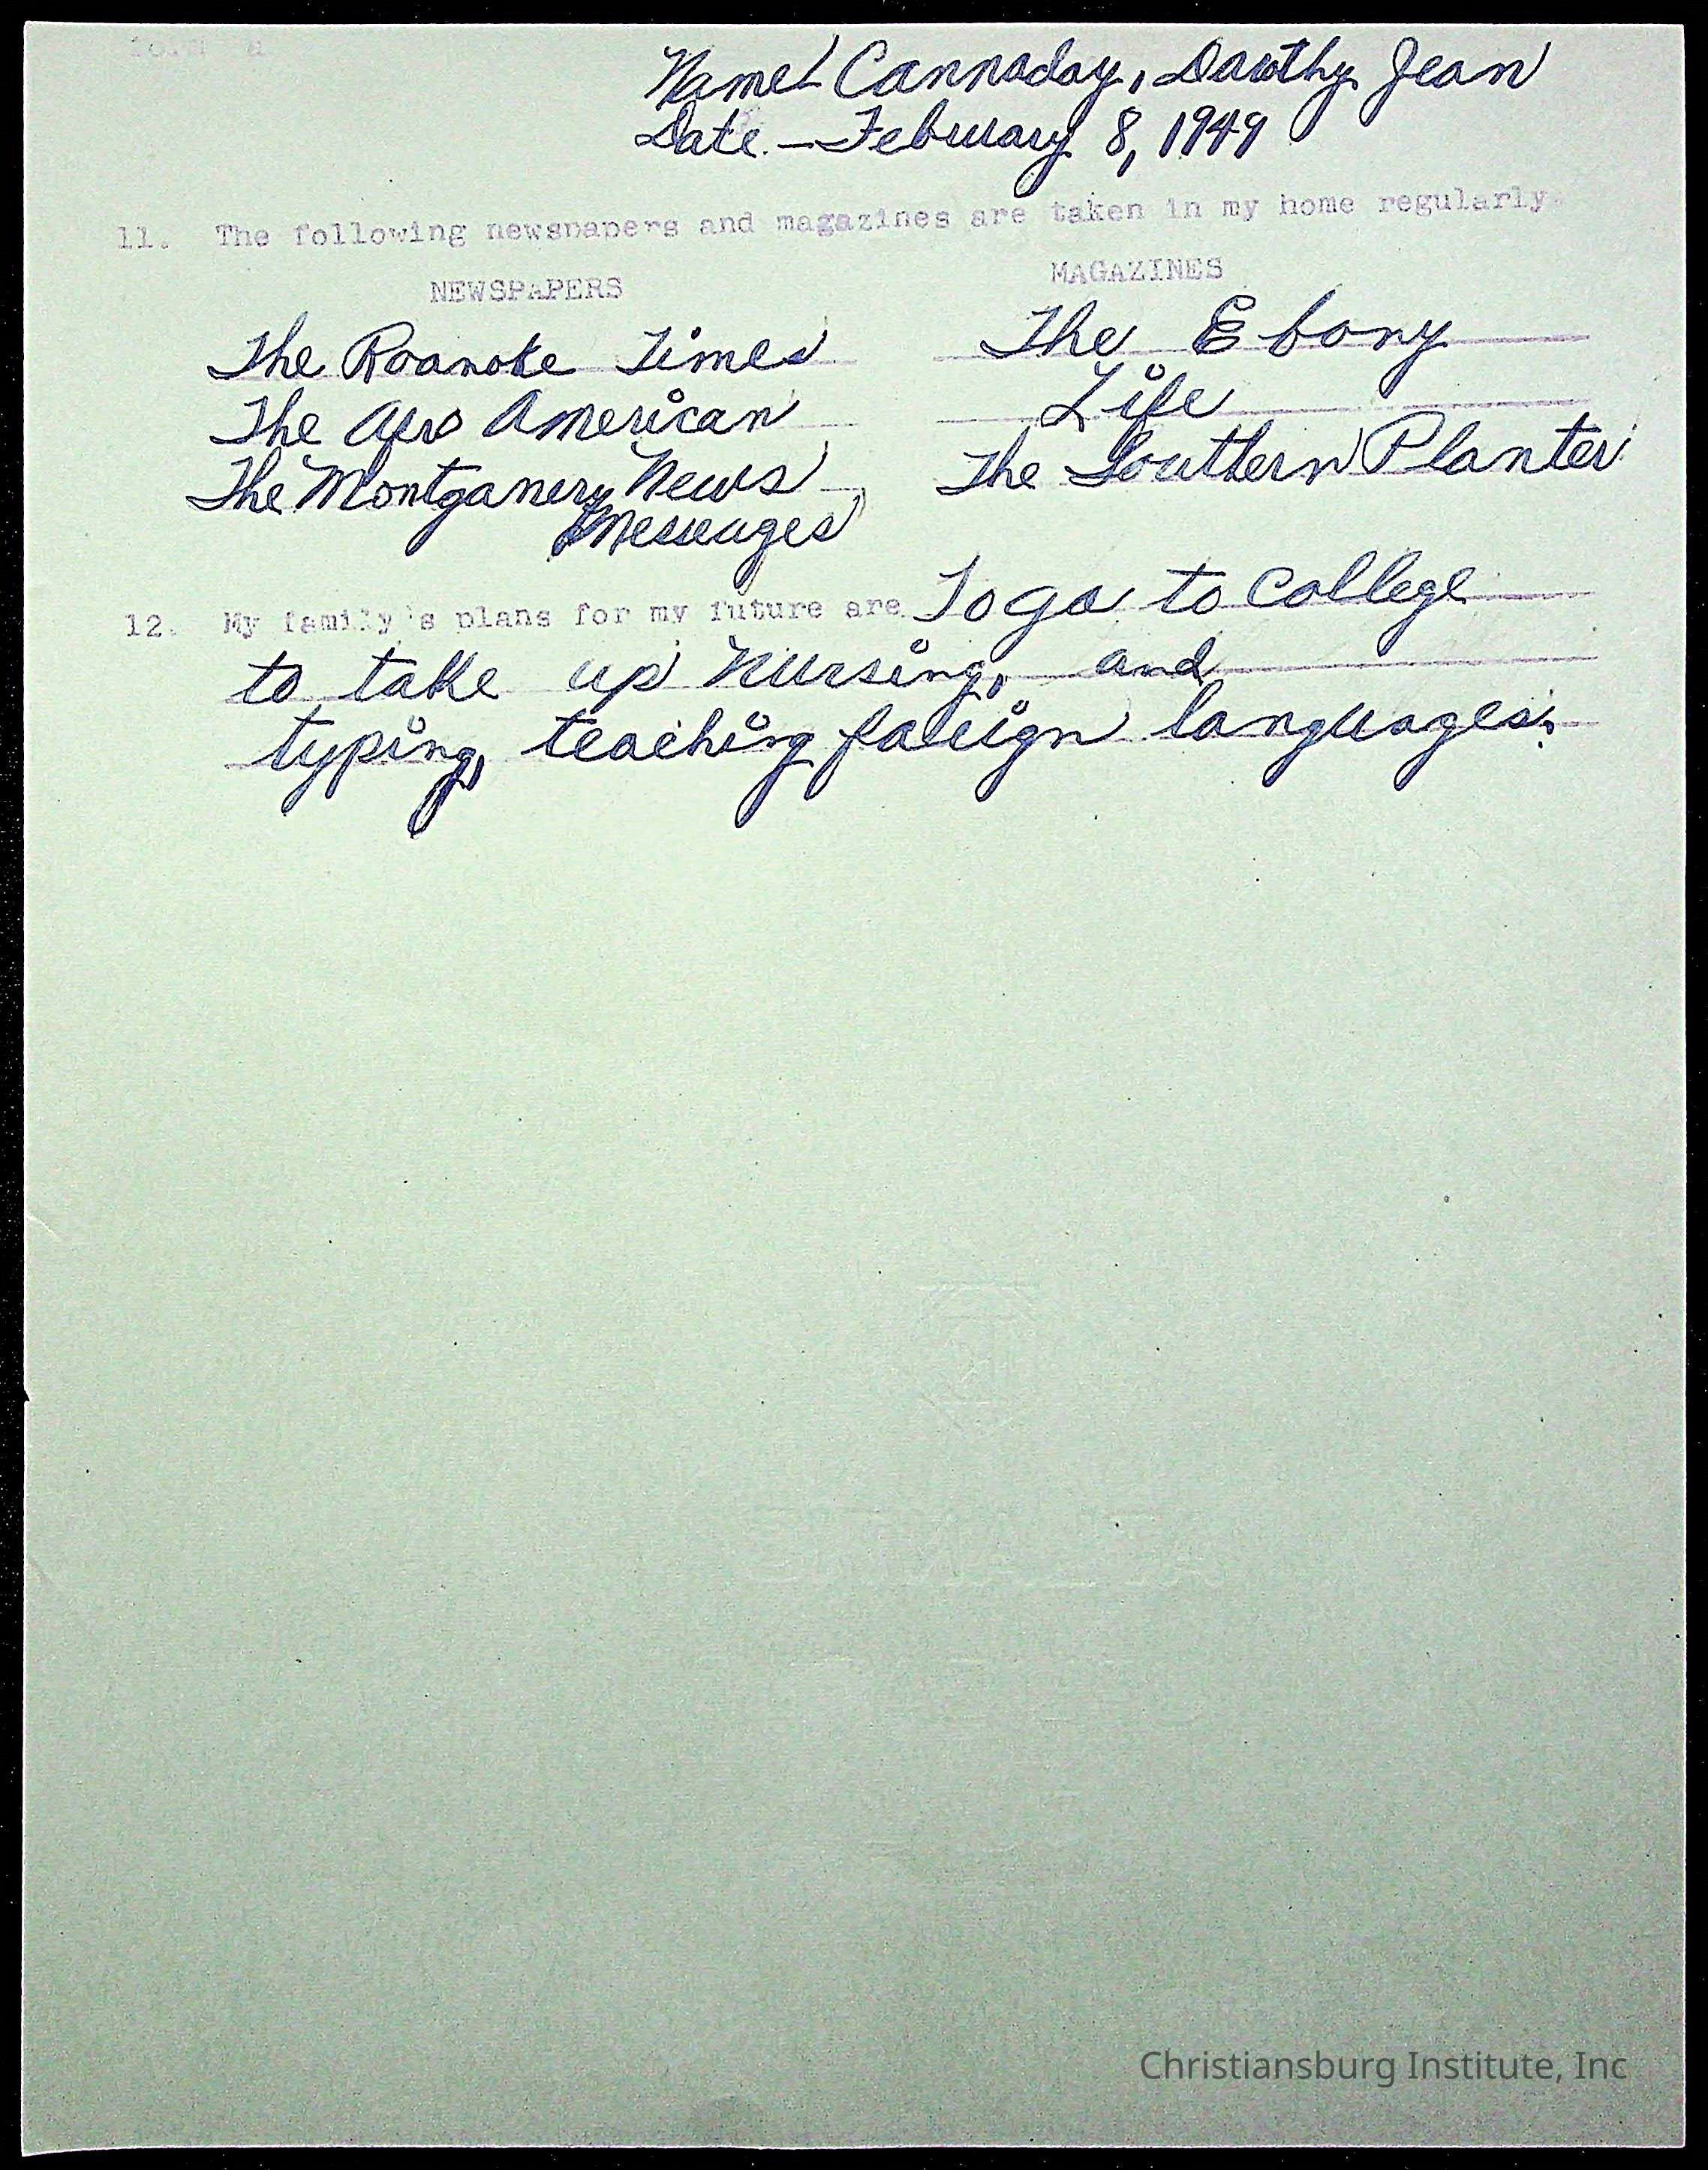 Name Cannaday, Dorothy Jean
Date - February 8, 1949
11. The following newspapers and magazines are taken in my home regularly.
NEWSPAPERS MAGAZINES
The Roanoke Times The Ebony
The Afro American Life
The Montgomery News The Southern Planter
Messeages
12. My family's plans for my future are To go to college
to take up Nursing, and
typing, teaching foreign languages.
Christiansburg Institute, Inc